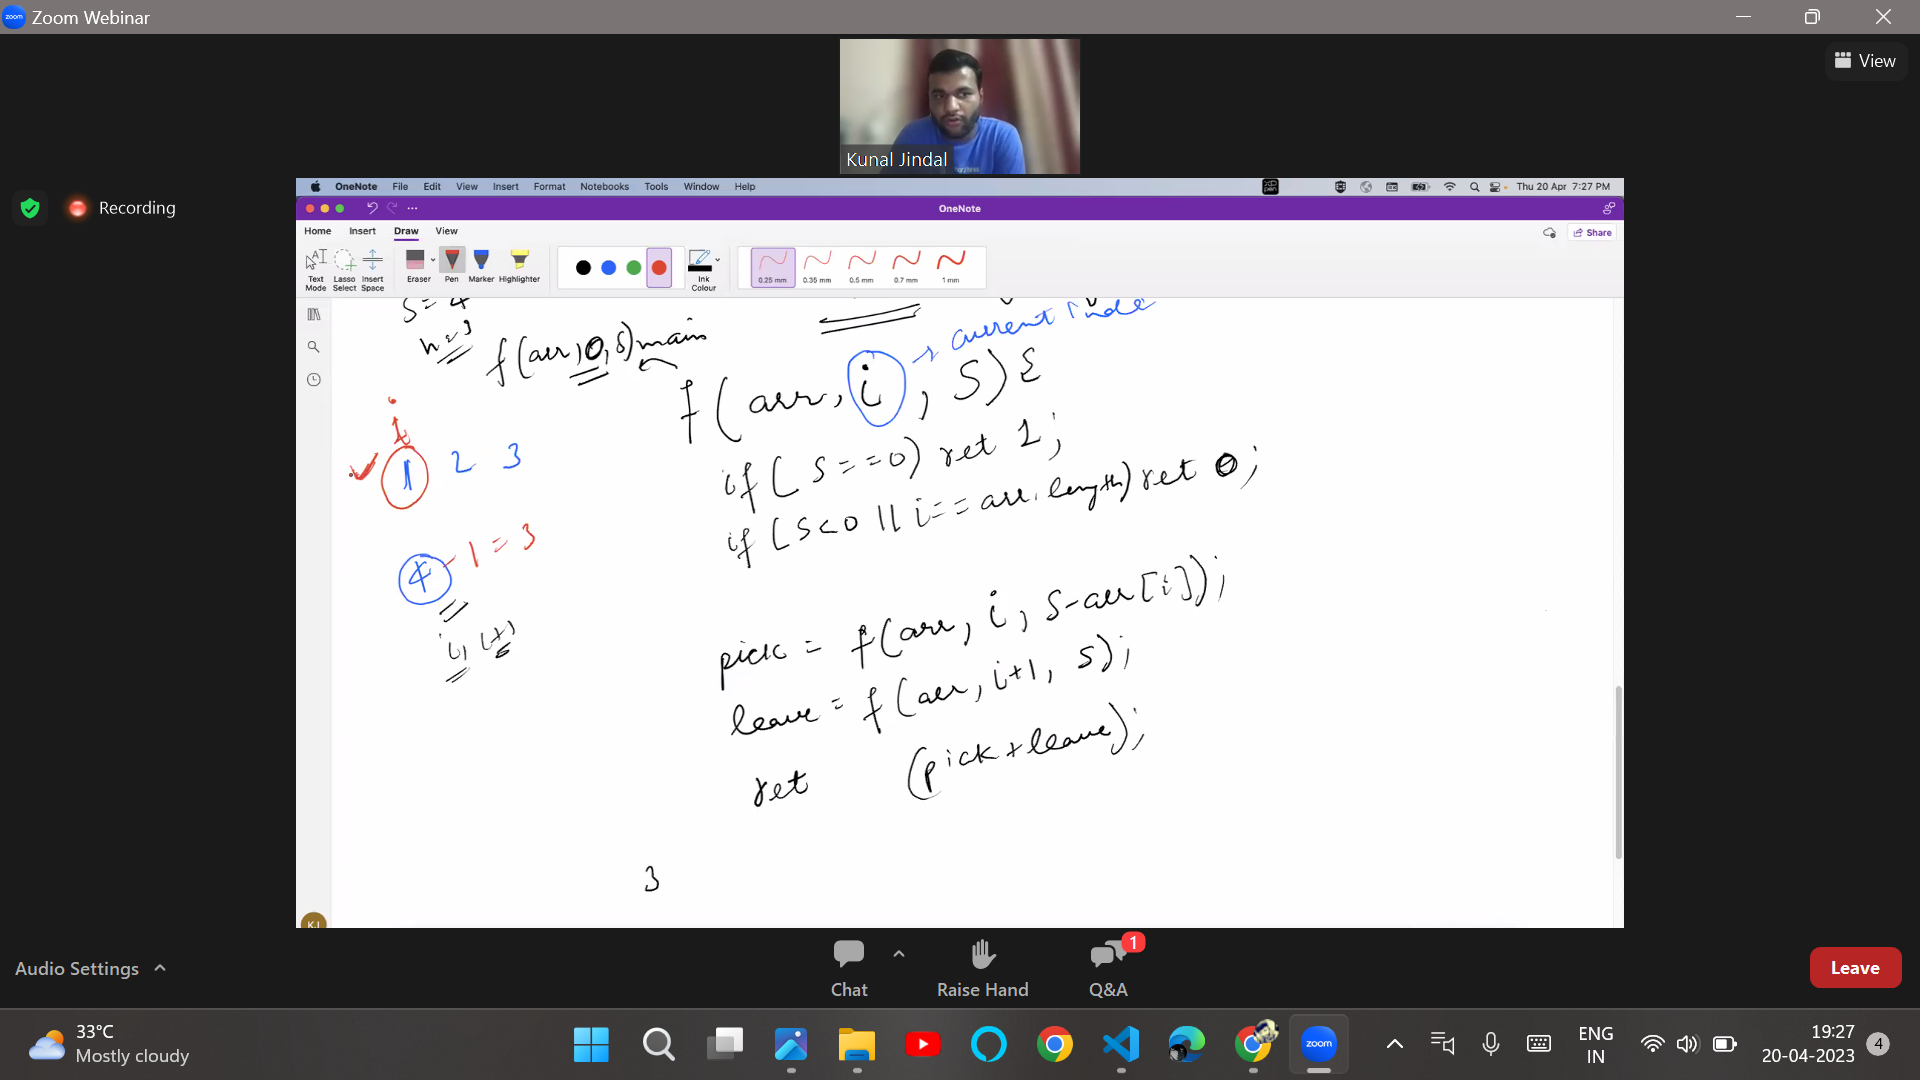 Zoom Webinar
View
Kunal Jindal
Recording
OneNote File Edit View Insert Format Notebooks Tools Window Help
Thu 20 Apr 7:27 PM
OneNote
Home Insert Draw View
Share
Text Mode
Lasso Select
Insert Space
Eraser
Pen
Marker
Highlighter
Ink Colour
0.25 mm
0.35 mm
0.5 mm
0.7 mm
1 mm
S = 4
n = 3
f(arr, 0, S) main
current inde
f(arr, i, S) {
i
1 2 3
if (S==0) ret 1;
if (S<0 || i==arr.length) ret 0;
4 - 1 = 3
i, i+
pick = f(arr, i, S-arr[i]);
leave = f(arr, i+1, S);
ret (pick+leave);
3
KJ
Audio Settings
Chat
Raise Hand
Q&A
1
Leave
33°C
Mostly cloudy
zoom
ENG
IN
19:27
20-04-2023
4